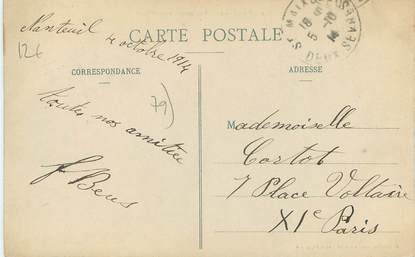 Nanteuil 4 octobre 1914
12€
CARTE POSTALE
CORRESPONDANCE
ADRESSE
79
toutes nos amitiés
Mademoiselle
Cortot
7 Place Voltaire
XIe Paris
18
5 -10
14
DEUX SEVRES